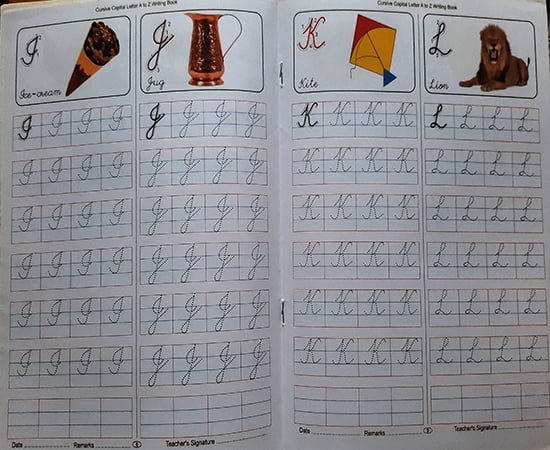 Cursive Capital Letter A to Z Writing Book
I
Ice-cream
J
Jug
I I I I
J J J J
I I I I
J J J J
I I I I
J J J J
I I I I
J J J J
I I I I
J J J J
I I I I
J J J J
Date Remarks
Teacher's Signature
Cursive Capital Letter A to Z Writing Book
K
Kite
L
Lion
K K K K
L L L L
K K K K
L L L L
K K K K
L L L L
K K K K
L L L L
K K K K
L L L L
K K K K
L L L L
Date Remarks
Teacher's Signature